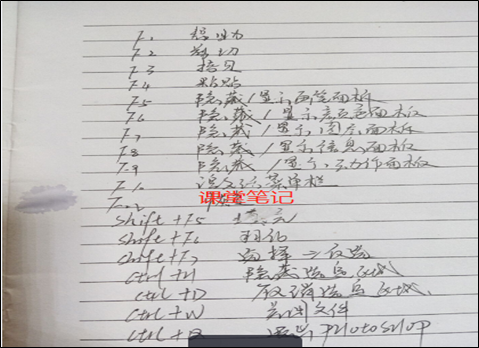 F1 帮助
F2 剪切
F3 拷贝
F4 粘贴
F5 隐藏/显示画笔面板
F6 隐藏/显示颜色面板
F7 隐藏/显示图层面板
F8 隐藏/显示信息面板
F9 隐藏/显示动作面板
F12
课堂笔记
Shift+F5 填充
Shift+F6 羽化
Shift+F7 选择→反选
Ctrl+H 隐藏选定区域
Ctrl+D 取消选定区域
Ctrl+W 关闭文件
Ctrl+Q 退出PhotoShop